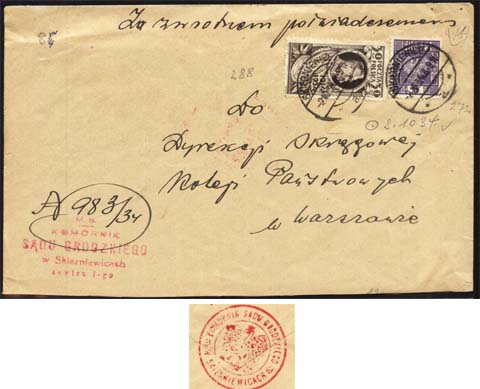 Za zwrotnem poświadczeniem
288
Do
2.10.34
Dyrekcji Okręgowej
Kolei Państwowych
w Warszawie
A 983/34
KOMORNIK
SĄDU GRODZKIEGO
w Skierniewicach
rewiru I-go
KOMORNIK SĄDU GRODZKIEGO
SKIERNIEWICACH